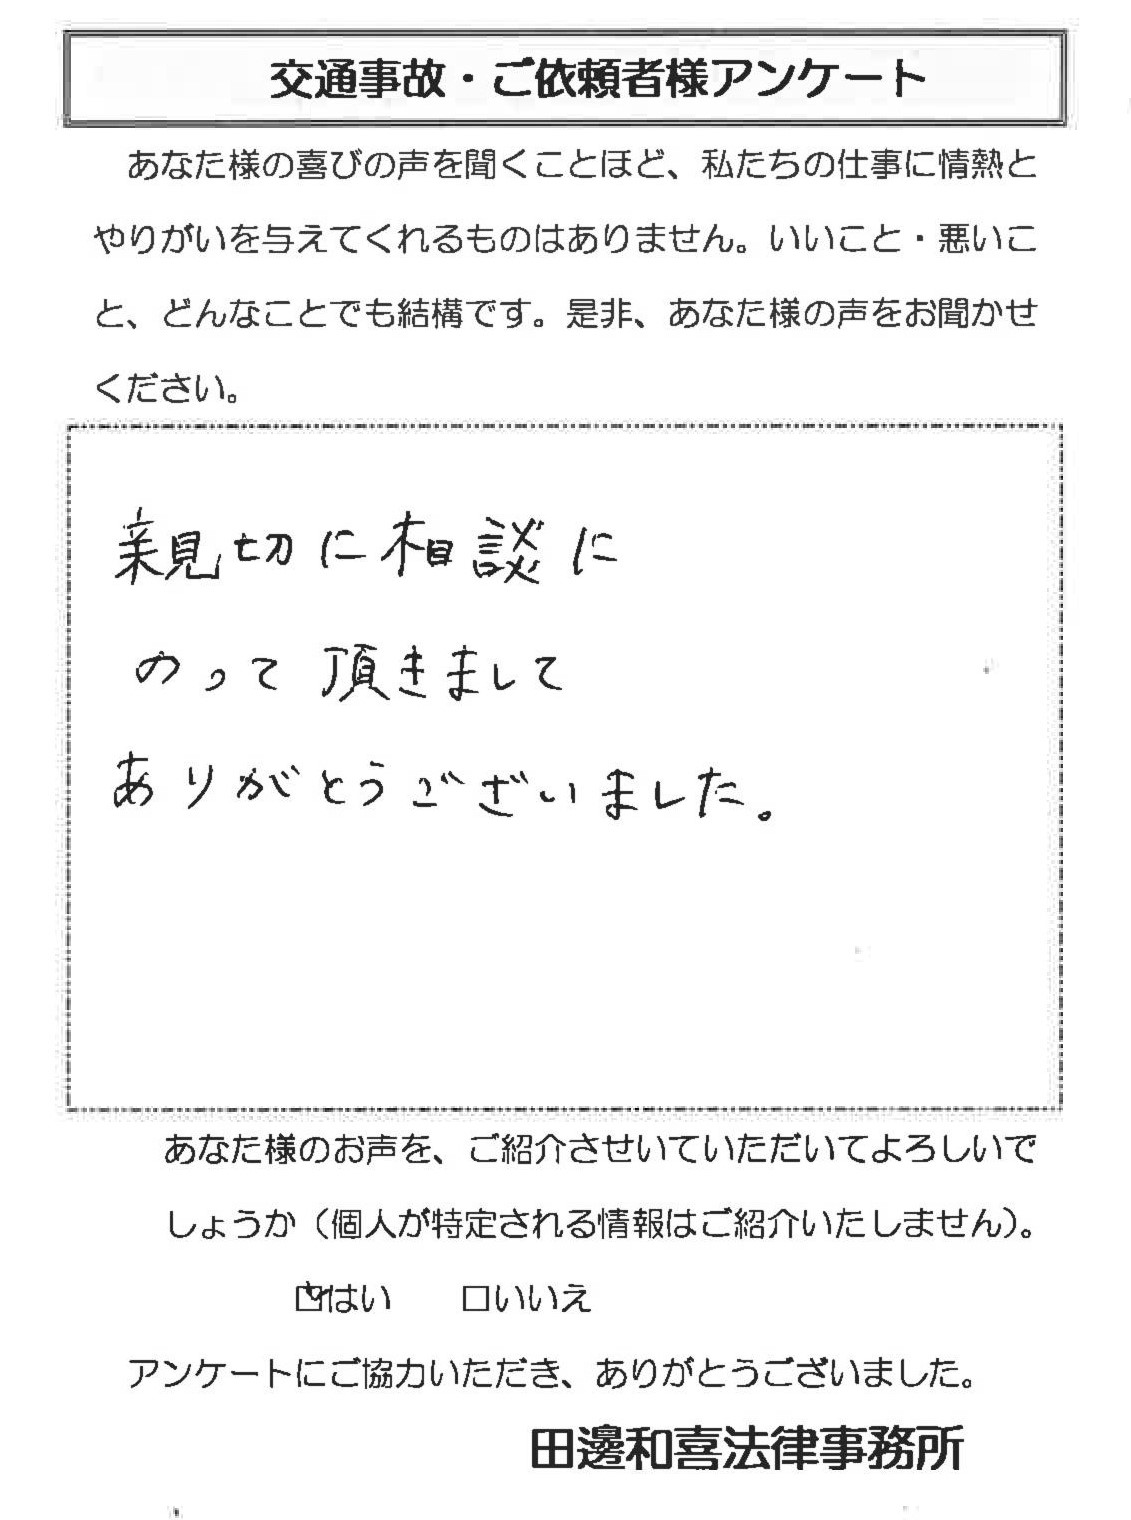 交通事故・ご依頼者様アンケート
あなた様の喜びの声を聞くことほど、私たちの仕事に情熱と
やりがいを与えてくれるものはありません。いいこと・悪いこ
と、どんなことでも結構です。是非、あなた様の声をお聞かせ
ください。
親切に相談に
のって頂きまして
ありがとうございました。
あなた様のお声を、ご紹介させいていただいてよろしいで
しょうか（個人が特定される情報はご紹介いたしません）。
☑はい　□いいえ
アンケートにご協力いただき、ありがとうございました。
田邊和喜法律事務所